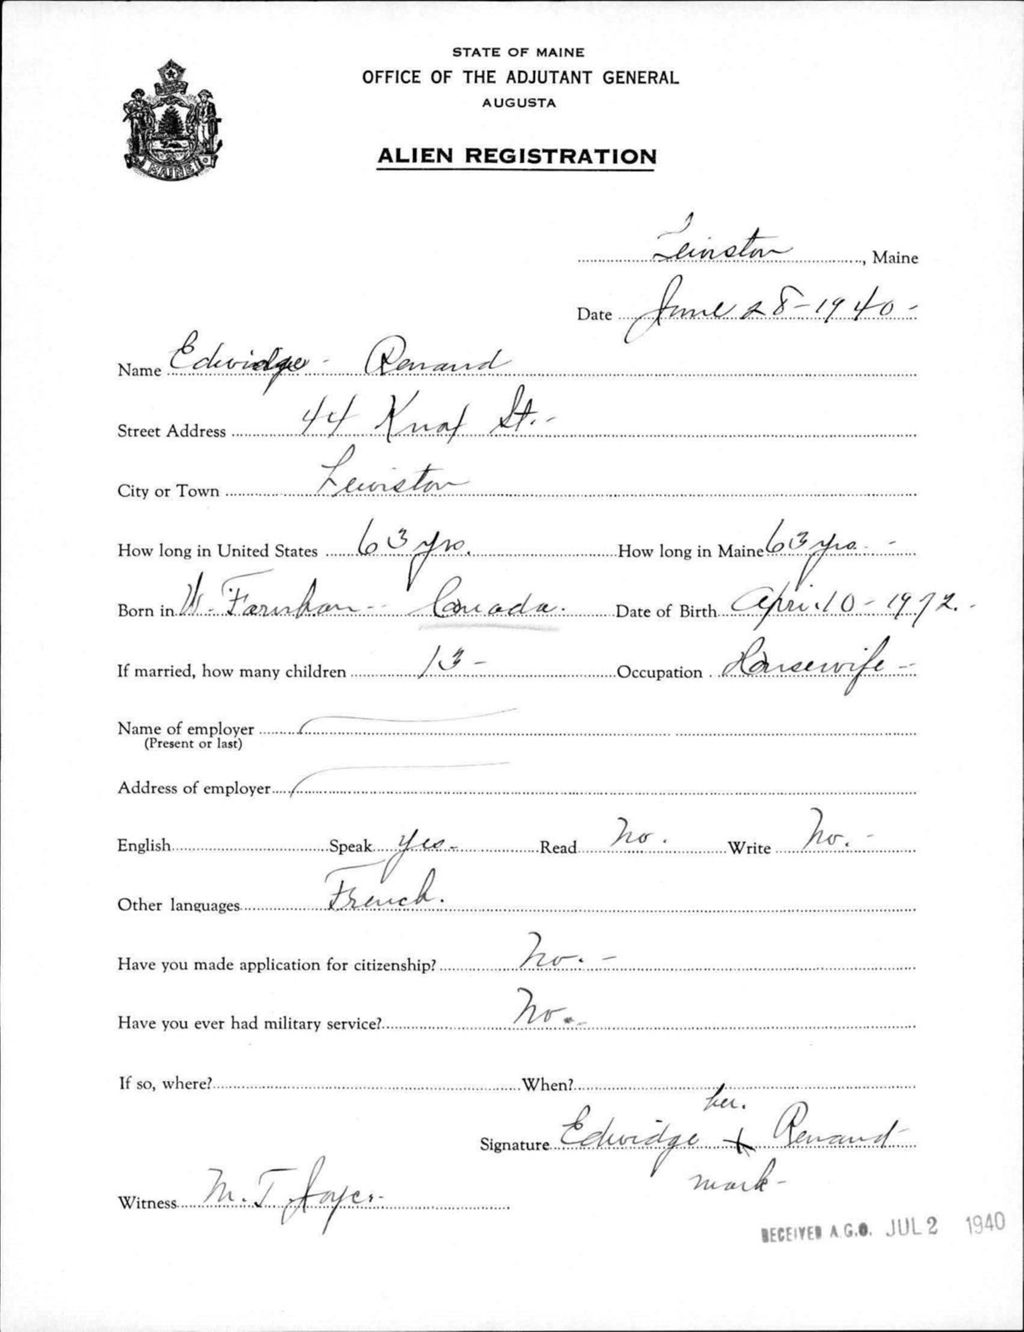 STATE OF MAINE
OFFICE OF THE ADJUTANT GENERAL
AUGUSTA
ALIEN REGISTRATION
MAINE
Lewiston, Maine
Date June 28-1940-
Name Edwidge - Renaud
Street Address 44 Knox St.-
City or Town Lewiston
How long in United States 63 yrs. How long in Maine 63 yrs. -
Born in W. Farnham - Canada. Date of Birth April 10 - 1972. -
If married, how many children 13 - Occupation Housewife -
Name of employer
(Present or last)
Address of employer
English Speak Yes - Read No. Write No. -
Other languages French.
Have you made application for citizenship? No. -
Have you ever had military service? No. -
If so, where? When?
her.
Signature Edwidge x Renaud
mark -
Witness M. T. Joyce -
RECEIVED A.G.O. JUL 2 1940